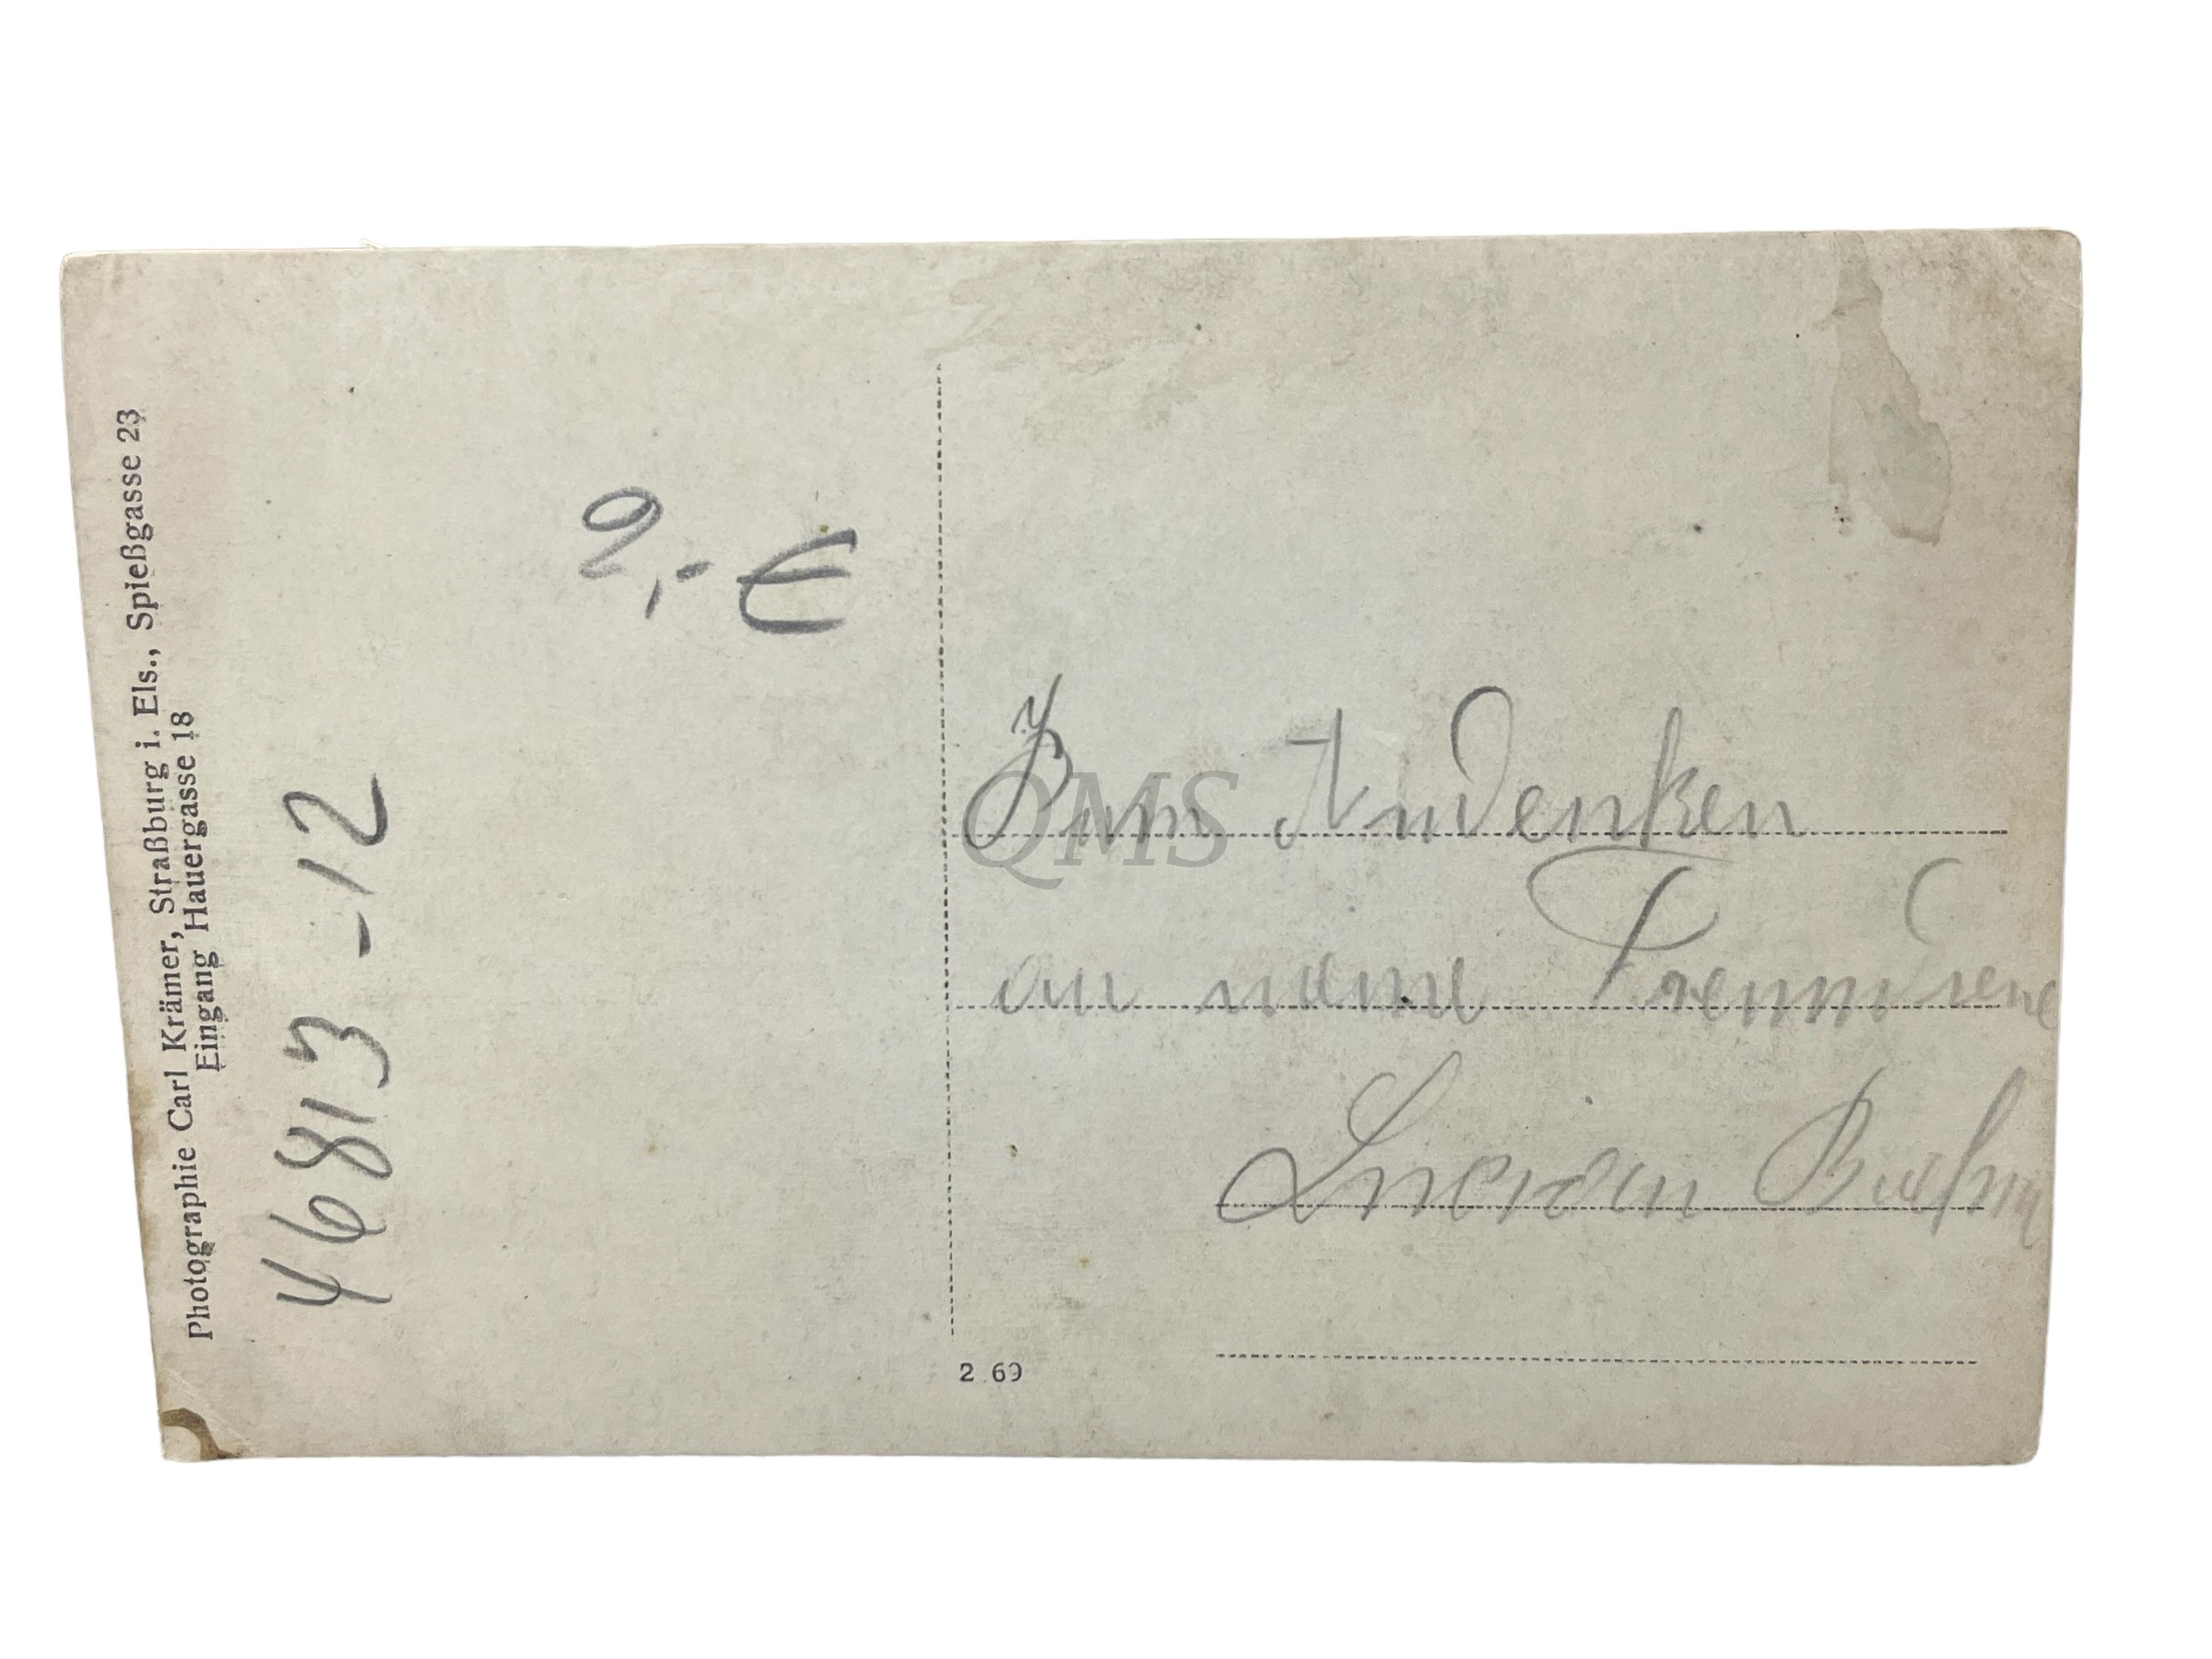 Photographie Carl Krämer, Straßburg i. Els., Spießgasse 23
Eingang Hauergasse 18
46813-12
2,- €
Zum Andenken
an meine
Lucien
2 69
QMS